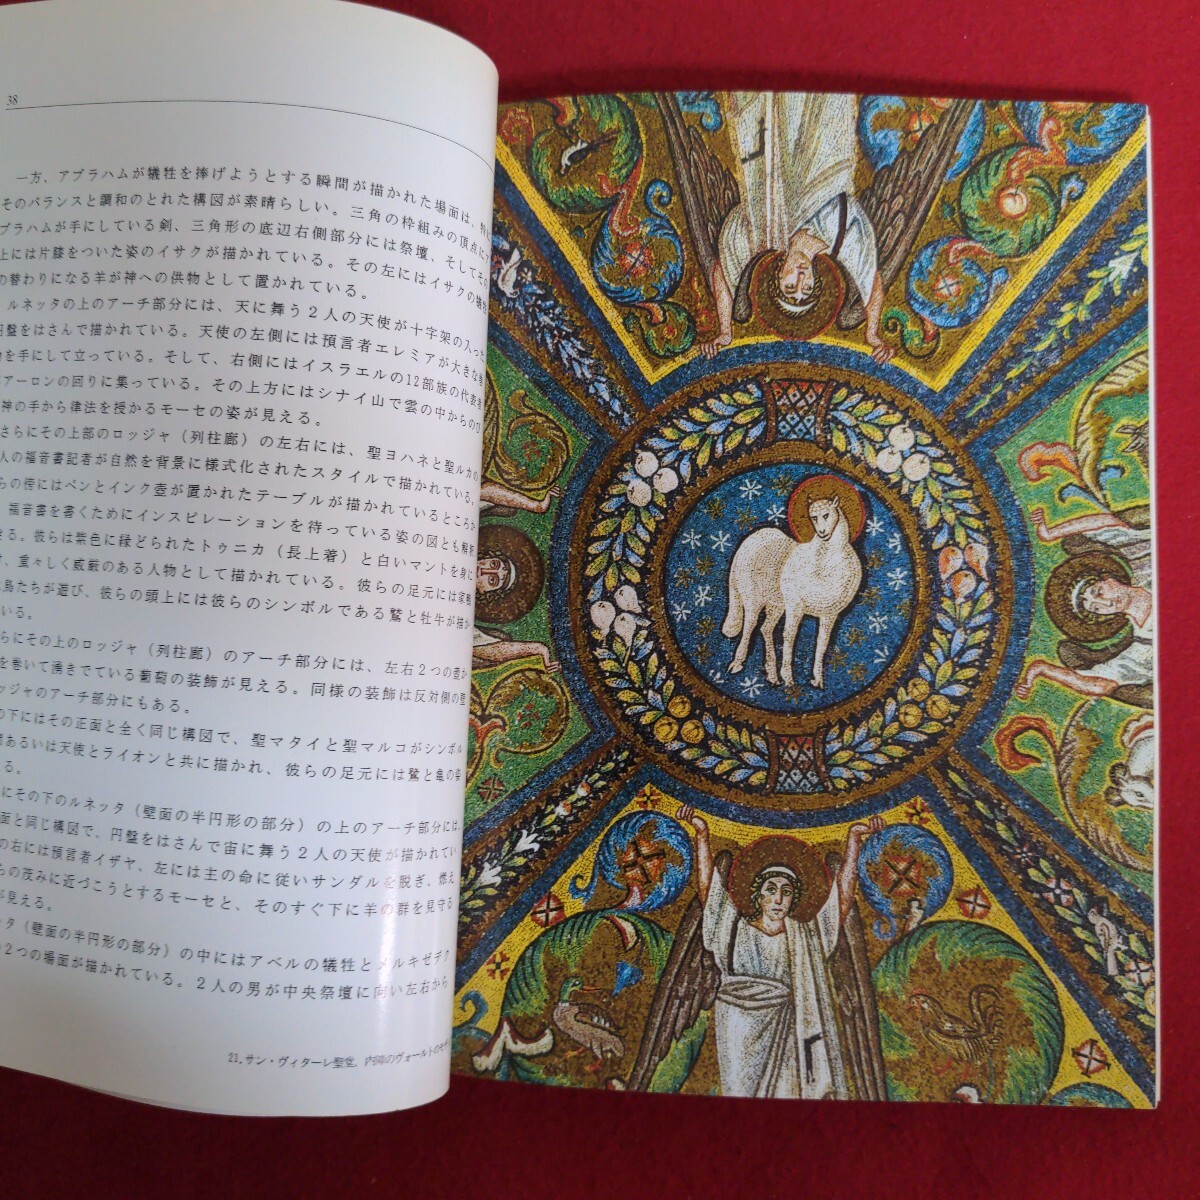 38
一方、アブラハムが犠牲を捧げようとする瞬間が描かれた場面は、特
そのバランスと調和のとれた構図が素晴らしい。三角の枠組みの頂点に
ブラハムが手にしている剣、三角形の底辺右側部分には祭壇、そしてその
上には片膝をついた姿のイサクが描かれている。その左にはイサクの犠牲
の替わりになる羊が神への供物として置かれている。
ルネッタの上のアーチ部分には、天に舞う2人の天使が十字架の入った
円盤をはさんで描かれている。天使の左側には預言者エレミアが大きな巻
を手にして立っている。そして、右側にはイスラエルの12部族の代表者
アーロンの回りに集っている。その上方にはシナイ山で雲の中からのび
神の手から律法を授かるモーセの姿が見える。
さらにその上部のロッジャ（列柱廊）の左右には、聖ヨハネと聖ルカの
人の福音書記者が自然を背景に様式化されたスタイルで描かれている。
らの傍にはペンとインク壺が置かれたテーブルが描かれているところか
、福音書を書くためにインスピレーションを待っている姿の図とも解釈
きる。彼らは紫色に縁どられたトゥニカ（長上着）と白いマントを身に
け、重々しく威厳のある人物として描かれている。彼らの足元には家鴨
鳥たちが遊び、彼らの頭上には彼らのシンボルである鷲と牡牛が描か
いる。
らにその上のロッジャ（列柱廊）のアーチ部分には、左右2つの壺か
を巻いて湧きでている葡萄の装飾が見える。同様の装飾は反対側の壁
ッジャのアーチ部分にもある。
の下にはその正面と全く同じ構図で、聖マタイと聖マルコがシンボル
あるいは天使とライオンと共に描かれ、彼らの足元には鷺と亀の姿
る。
にその下のルネッタ（壁面の半円形の部分）の上のアーチ部分には、
面と同じ構図で、円盤をはさんで宙に舞う2人の天使が描かれてい
の右には預言者イザヤ、左には主の命に従いサンダルを脱ぎ、燃え
らの茂みに近づこうとするモーセと、そのすぐ下に羊の群を見守る
が見える。
ッタ（壁面の半円形の部分）の中にはアベルの犠牲とメルキゼデク
2つの場面が描かれている。2人の男が中央祭壇に向い左右から
21.サン・ヴィターレ聖堂、内陣のヴォールトの